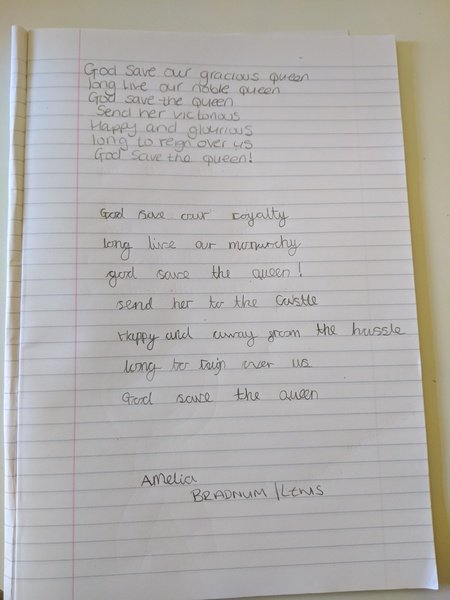 God save our gracious queen
long live our noble queen
God save the queen
Send her victorious
Happy and glourious
long to reign over us
God save the queen!
God save our royalty
long live our monurchy
god save the queen!
send her to the castle
Happy and away from the hussle
long to reign over us
God save the queen
Amelia
BRADNUM/LEWIS